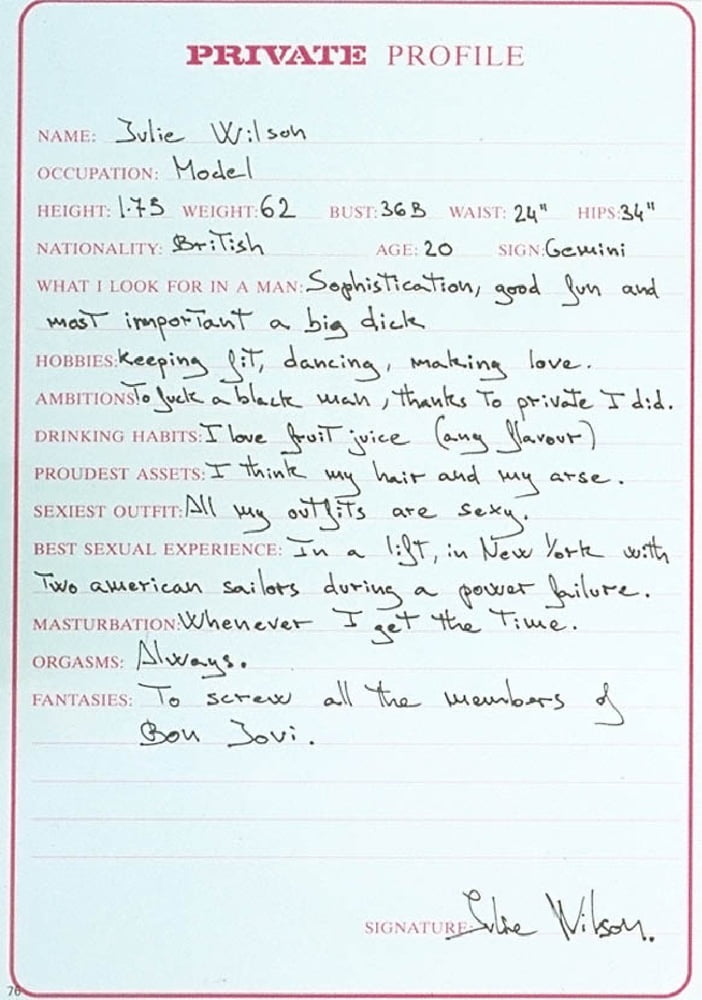 PRIVATE PROFILE
NAME: Julie Wilson
OCCUPATION: Model
HEIGHT: 1.75 WEIGHT: 62 BUST: 36B WAIST: 24" HIPS: 34"
NATIONALITY: British AGE: 20 SIGN: Gemini
WHAT I LOOK FOR IN A MAN: Sophistication, good fun and
most important a big dick
HOBBIES: Keeping fit, dancing, making love.
AMBITIONS To fuck a black man, thanks to private I did.
DRINKING HABITS: I love fruit juice (any flavour)
PROUDEST ASSETS: I think my hair and my arse.
SEXIEST OUTFIT: All my outfits are sexy.
BEST SEXUAL EXPERIENCE: In a lift, in New York with
Two american sailors during a power failure.
MASTURBATION: Whenever I get the Time.
ORGASMS: Always.
FANTASIES: To screw all the members of
Bon Jovi.
SIGNATURE: Julie Wilson.
76